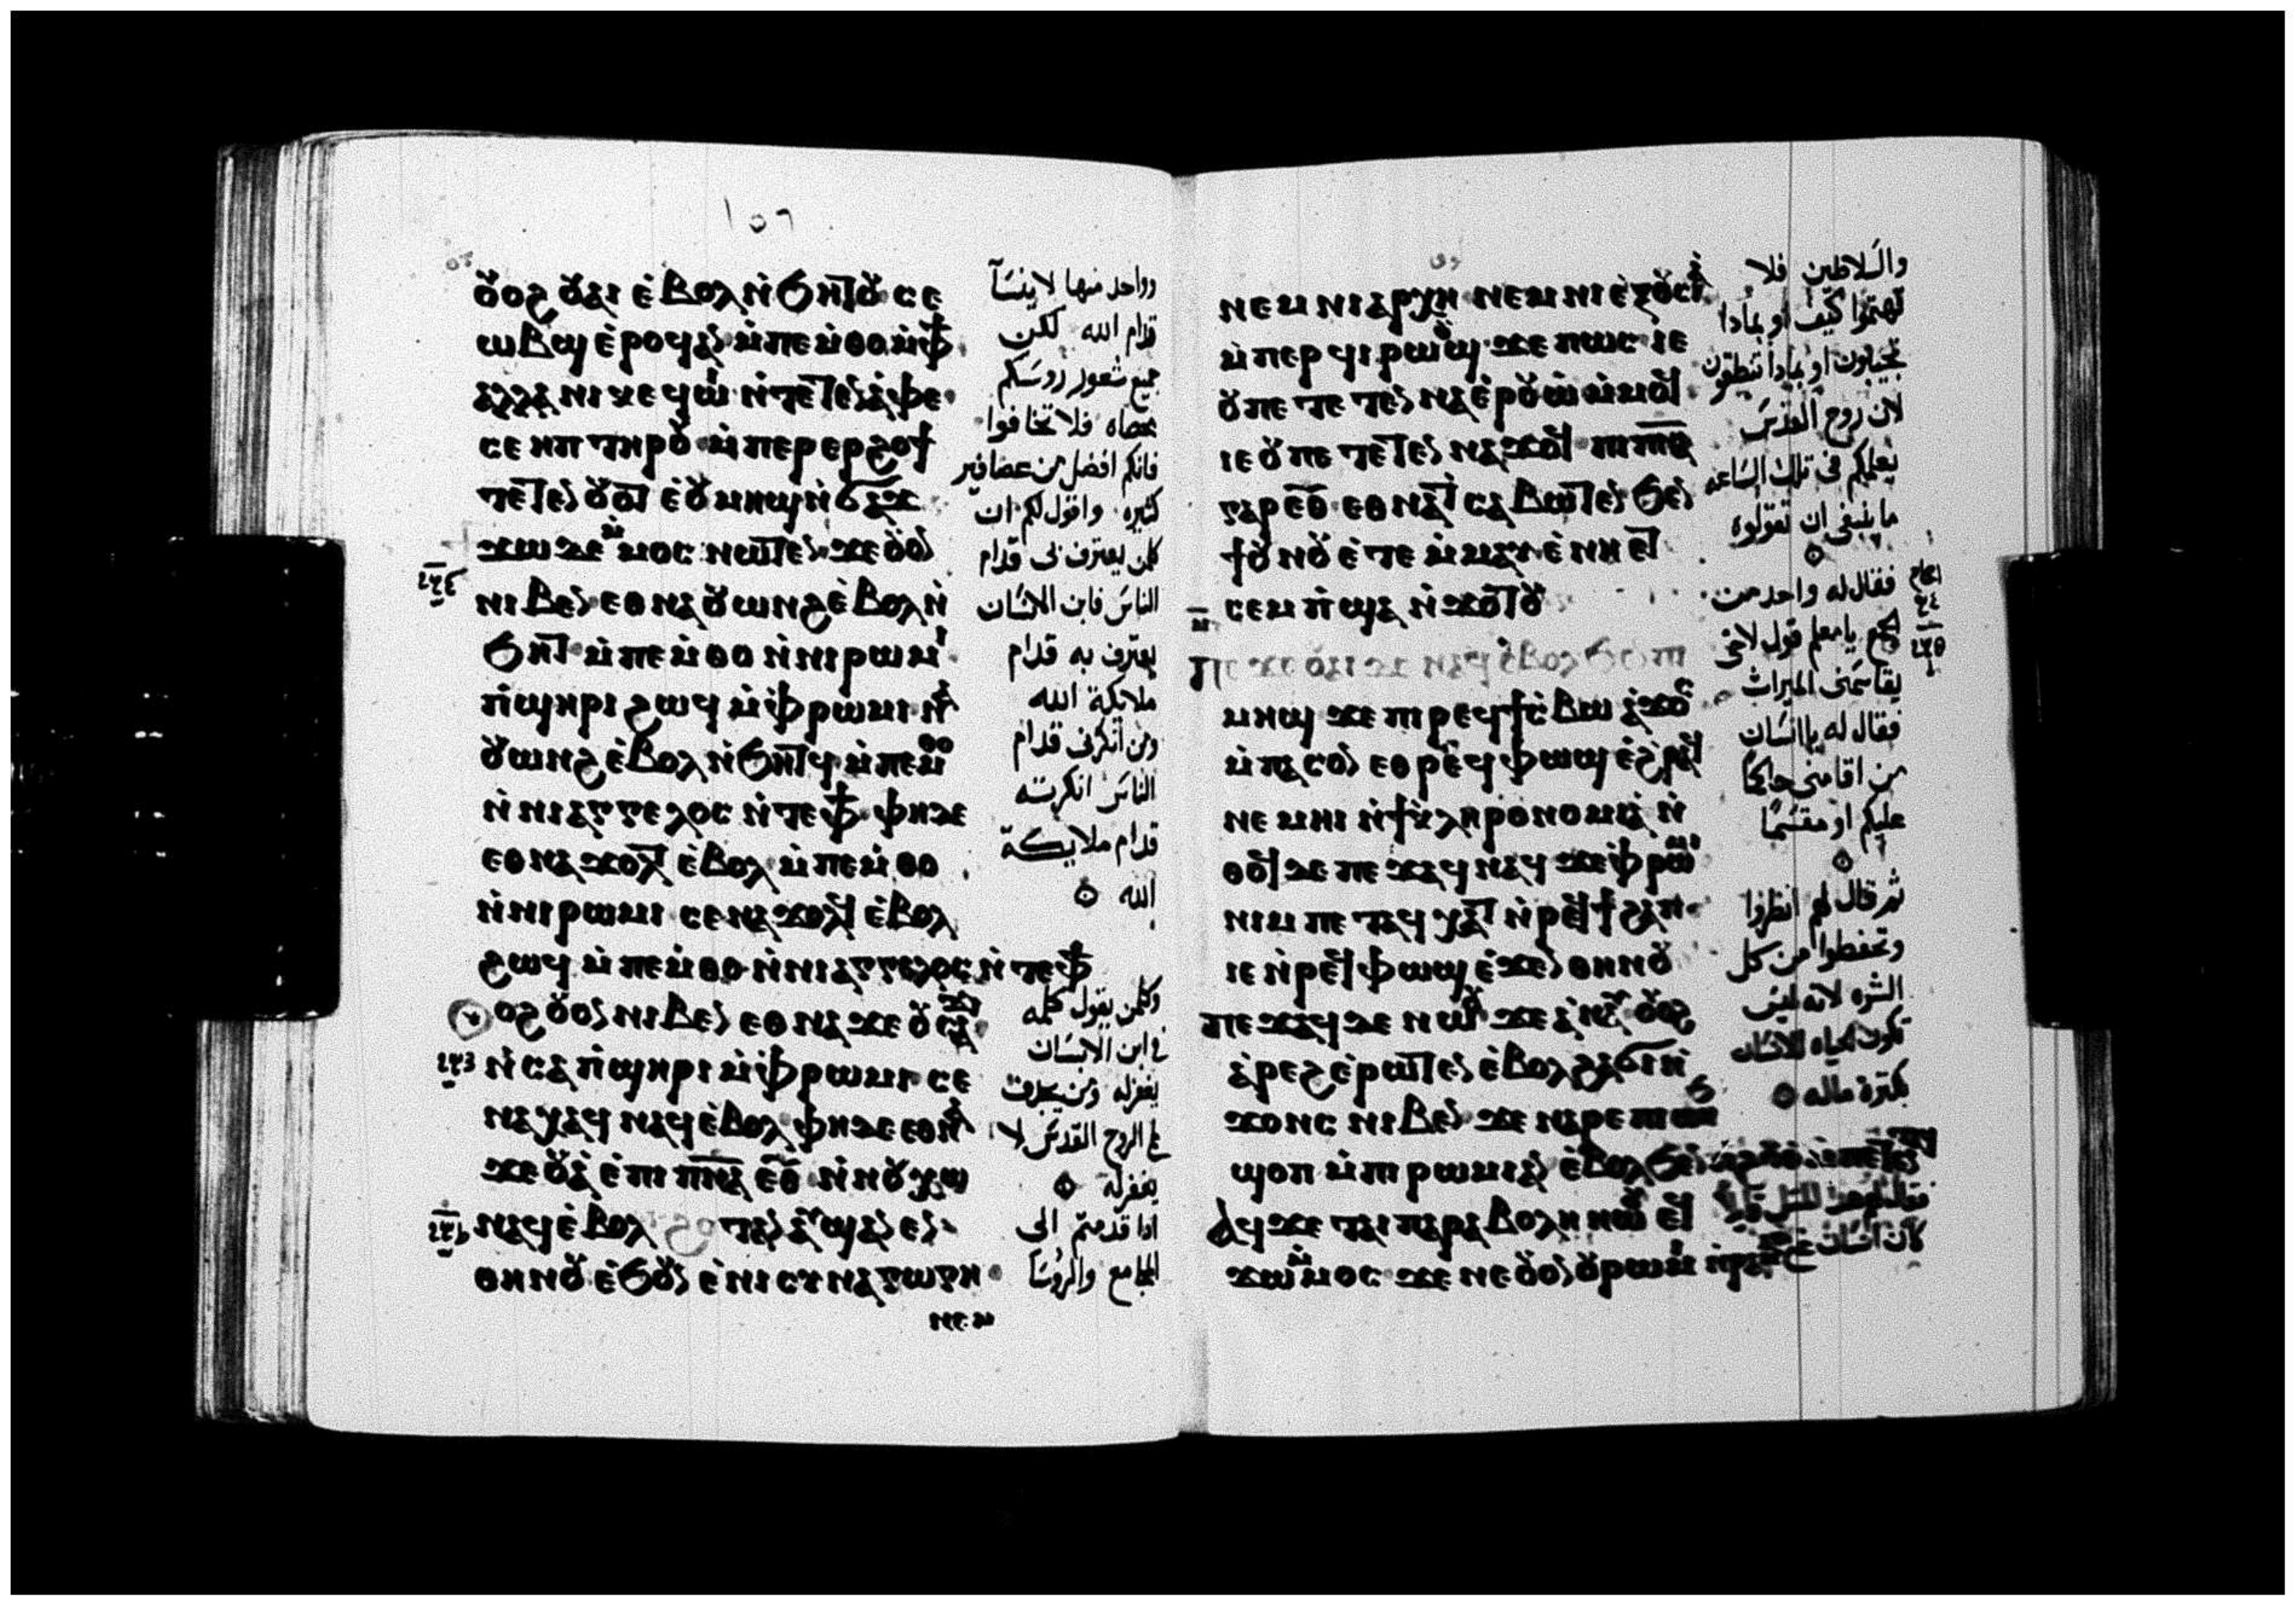 ١٥٦
ⲟ̆ⲟϩ ⲟ̆ⲁⲓ ⲉ̀ⲃⲟⲗ ⲛ̀ϧⲏⲧⲟ̆ ⲥⲉ
ⲱⲃϣ ⲉ̀ⲣⲟϥ ⲁⲛ ⲙ̀ⲡⲉⲙ̀ⲑⲟ ⲙ̀ⲫϯ
ⲁⲗⲗⲁ ⲛⲓⲕⲉϥⲱⲓ ⲛ̀ⲧⲉⲧⲉⲛⲁ̀ⲫⲉ
ⲥⲉ ⲏⲡ ⲧⲏⲣⲟ̆ ⲙ̀ⲡⲉⲣⲉⲣϩⲟϯ
ⲧⲉⲧⲉⲛ ⲟ̆ⲟⲧ ⲉ̀ⲟ̆ⲙⲏϣ ⲛ̀ϭⲁϫ
ϫⲱ ⲇⲉ ⲙ̀ⲙⲟⲥ ⲛⲱⲧⲉⲛ ϫⲉ ⲟ̆ⲟⲛ
ⲛⲓⲃⲉⲛ ⲉⲑⲛⲁⲟ̆ⲱⲛϩ ⲉ̀ⲃⲟⲗ ⲛ̀
ϧⲏⲧ ⲙ̀ⲡⲉⲙ̀ⲑⲟ ⲛ̀ⲛⲓⲣⲱⲙⲓ
ⲡ̀ϣⲏⲣⲓ ϩⲱϥ ⲙ̀ⲫⲣⲱⲙⲓ ⲛⲁ̀
ⲟ̆ⲱⲛϩ ⲉ̀ⲃⲟⲗ ⲛ̀ϧⲏⲧϥ ⲙ̀ⲡⲉⲙⲑⲟ
ⲛ̀ⲛⲓⲁⲅⲅⲉⲗⲟⲥ ⲛ̀ⲧⲉ ⲫϯ ⲫⲏ ⲇⲉ
ⲉⲑⲛⲁϫⲟⲗⲧ ⲉ̀ⲃⲟⲗ ⲙ̀ⲡⲉⲙ̀ⲑⲟ
ⲛ̀ⲛⲓⲣⲱⲙⲓ ⲥⲉⲛⲁϫⲟⲗϥ ⲉ̀ⲃⲟⲗ
ϩⲱϥ ⲙ̀ⲡⲉⲙ̀ⲑⲟ ⲛ̀ⲛⲓⲁⲅⲅⲉⲗⲟⲥ ⲛ̀ⲧⲉ ⲫϯ
ⲟϩ ⲟ̆ⲟⲛ ⲛⲓⲃⲉⲛ ⲉⲑⲛⲁϫⲉ ⲟ̆ⲥⲁϫⲓ
ⲛ̀ⲥⲁ ⲡ̀ϣⲏⲣⲓ ⲙ̀ⲫⲣⲱⲙⲓ ⲥⲉ
ⲛⲁⲭⲁϥ ⲛⲁϥ ⲉ̀ⲃⲟⲗ ⲫⲏ ⲇⲉ ⲉⲑⲛⲁ
ϫⲉ ⲟ̆ⲁ̀ ⲉ̀ⲡⲓⲡ̅ⲛ̅ⲁ̅ ⲉ̅ⲑ̅ ⲛ̀ⲛⲟ̆ⲭⲱ
ⲛⲁϥ ⲉ̀ⲃⲟⲗ ϩⲟⲧⲁⲛ ⲁ̀ϣⲁⲛⲉⲛ
ⲑⲏⲛⲟ̆ ⲉ̀ϧⲟ̆ⲛ ⲉ̀ⲛⲓⲥⲩⲛⲁⲅⲱⲅⲏ
ⲛⲉⲙ
وواحد منها لا ينسا
قدام الله لكن
جميع شعور روسكم
محصاه فلا تخافوا
فانكم افضل من عصافير
كثيره واقول لكم ان
كلمن يعترف بى قدام
الناس فابن الانسان
يعترف به قدام
ملائكة الله
ومن انكرنى قدام
الناس انكرته
قدام ملايكة
الله
وكلمن يقول كلمه
فى ابن الانسان
يغفر له ومن يجدف
على الروح القدس لا
يغفر له
اذا قدمتم الى
المجامع والروسا
ⲛⲉⲙ ⲛⲓⲁⲣⲭⲏ ⲛⲉⲙ ⲛⲓⲉ̀ⲝⲟ̆ⲥⲓⲁ̀
ⲙ̀ⲡⲉⲣϥⲓⲣⲱⲟ̆ϣ ϫⲉ ⲡⲱⲥ ⲓⲉ
ⲟ̆ ⲡⲉ ⲧⲉⲧⲉⲛⲛⲁⲉ̀ⲣⲟ̆ⲱ̀ ⲙ̀ⲙⲟϥ
ⲓⲉ ⲟ̆ ⲡⲉ ⲧⲉⲧⲉⲛⲛⲁϫⲟϥ ⲡⲓⲡ̅ⲛ̅ⲁ̅
ⲅⲁⲣ ⲉ̅ⲑ̅ ⲉⲑⲛⲁⲧⲥⲁⲃⲱⲧⲉⲛ ϧⲉⲛ
ϯⲟ̆ⲛⲟ̆ ⲉ̀ⲧⲉ ⲙ̀ⲙⲁⲩ ⲉ̀ⲛⲏ ⲉⲧ
ⲥⲉⲙⲡ̀ϣⲁ ⲛ̀ϫⲟⲧⲟ̆
ⲙⲏϣ ϫⲉ ⲡⲓⲣⲉϥϯⲥ̀ⲃⲱ ⲁ̀ϫⲟⲥ
ⲙ̀ⲡⲁⲥⲟⲛ ⲉⲑⲣⲉϥⲫⲱϣ ⲉ̀ϩⲣⲁϥ
ⲛⲉⲙⲏⲓ ⲛ̀ϯⲕ̀ⲗⲏⲣⲟⲛⲟⲙⲓⲁ̀ ⲛ̀
ⲑⲟϥ ⲇⲉ ⲡⲉϫⲁϥ ⲛⲁϥ ϫⲉ ⲫⲣⲱⲙⲓ
ⲛⲓⲙ ⲡⲉⲧⲁϥⲭⲁⲧ ⲛ̀ⲣⲉϥϯϩⲁⲡ
ⲓⲉ ⲛ̀ⲣⲉϥⲫⲱϣ ⲉ̀ϫⲉⲛ ⲑⲏⲛⲟ̆
ⲡⲉϫⲁϥ ⲇⲉ ⲛⲱⲟ̆ ϫⲉ ⲁ̀ⲛⲁⲩ ⲟ̆ⲟϩ
ⲁ̀ⲣⲉϩ ⲉ̀ⲣⲱⲧⲉⲛ ⲉ̀ⲃⲟⲗ ϩⲁ ϭⲓⲛ̀
ϫⲟⲛⲥ ⲛⲓⲃⲉⲛ ϫⲉ ⲛⲁⲣⲉ ⲡⲱⲛϧ
ϣⲟⲡ ⲙ̀ⲡⲓⲣⲱⲙⲓ ⲁⲛ ⲉ̀ⲃⲟⲗ ϧⲉⲛ
ⲁϥϫⲉ ⲧⲁⲓⲡⲁⲣⲁⲃⲟⲗⲏ ⲛⲱⲟ̆ ⲉϥ
ϫⲱ ⲙ̀ⲙⲟⲥ ϫⲉ ⲛⲉ ⲟ̆ⲟⲛ ⲟ̆ⲣⲱⲙⲓ
والسلاطين فلا
تهتموا كيف او بماذا
تجيبون او بماذا تنطقون
لان روح القدس
يعلمكم فى تلك الساعه
ما ينبغى ان تقولوه
فقال له واحد من
الجمع يا معلم قول لاخى
يقاسمنى الميراث
فقال له يا انسان
من اقامنى حاكمًا
عليكم او مقسمًا
ثم قال لهم انظروا
وتحفظوا من كل
الشره لانه ليس
تكون الحياه للانسان
بكثرة ماله
كان انسان غنى